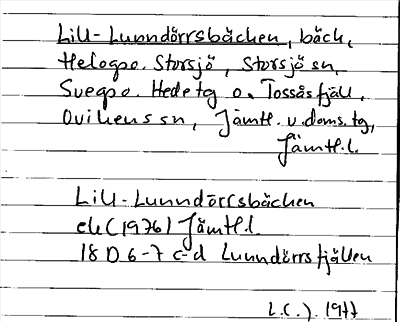 Lill-Lunndörrsbäcken, bäck,
Helagso. Storsjö, Storsjö sn,
Svegs o. Hede tg o. Tossåsfjäll,
Ovikens sn, Jämtl. v. doms. tg,
Jämtl.l.
Lill-Lunndörrsbäcken
ek (1976) Jämtl.l
18 D 6-7 c-d Lunndörrsfjällen
1977